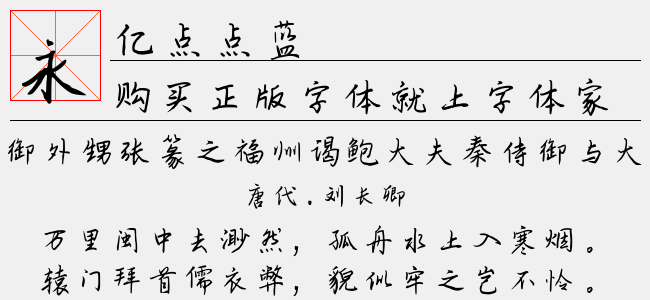 永
亿点点蓝
购买正版字体就上字体家
御外甥张篆之福州谒鲍大夫秦侍御与大
唐代.刘长卿
万里闽中去渺然，孤舟水上入寒烟。
辕门拜首儒衣弊，貌似牢之岂不怜。